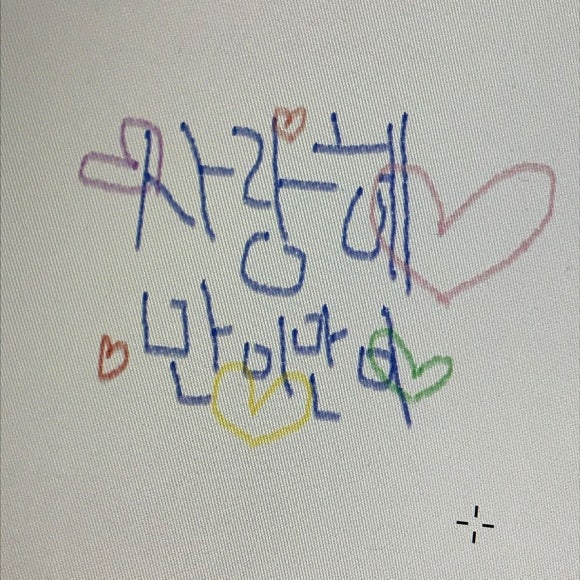 사랑헤
만이만이